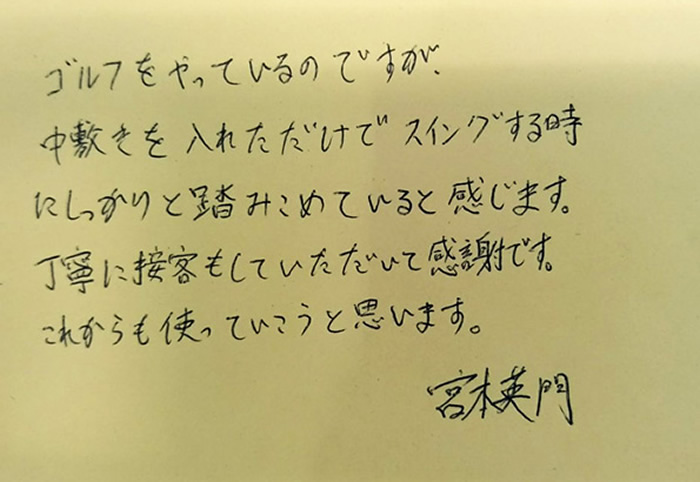 ゴルフをやっているのですが、
中敷きを入れただけでスイングする時
にしっかりと踏みこめていると感じます。
丁寧に接客もしていただいて感謝です。
これからも使っていこうと思います。
宮本英門